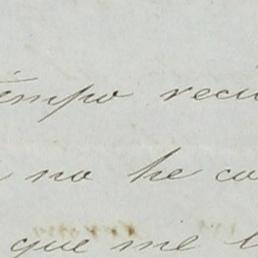 tiempo reci
no he co
que me l